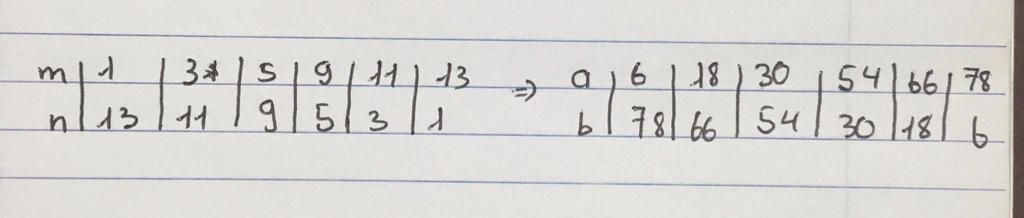 m | 1 | 3 | 5 | 9 | 11 | 13 ⇒ a | 6 | 18 | 30 | 54 | 66 | 78
n | 13 | 11 | 9 | 5 | 3 | 1 b | 78 | 66 | 54 | 30 | 18 | 6